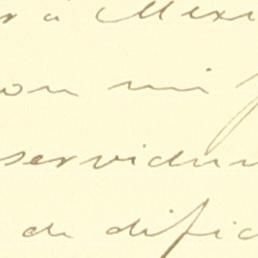 r á Mexi
on mi f
servidum
de dific